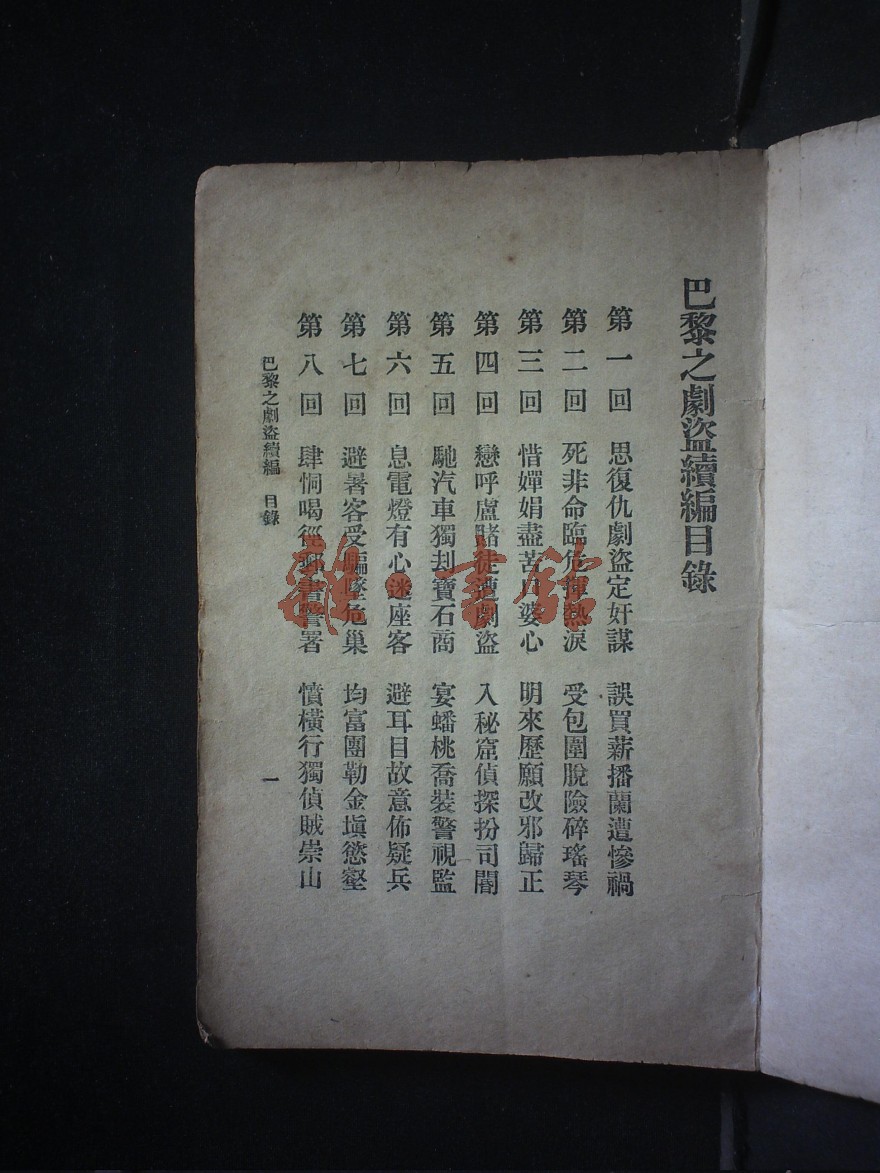 巴黎之劇盜續編目錄
第一回 思復仇劇盜定奸謀 誤買薪播蘭遭慘禍
第二回 死非命臨危揮熱淚 受包圍脫險碎瑤琴
第三回 惜嬋娟盡苦口婆心 明來歷願改邪歸正
第四回 戀呼盧賭徒遭劇盜 入秘窟偵探扮司閽
第五回 馳汽車獨刦寶石商 宴蟠桃喬裝警視監
第六回 息電燈有心迷座客 避耳目故意佈疑兵
第七回 避暑客受騙墜危巢 均富團勒金塡慾壑
第八回 肆恫喝徑郵書警署 憤橫行獨偵賊崇山
巴黎之劇盜續編 目錄
一
雜·書館